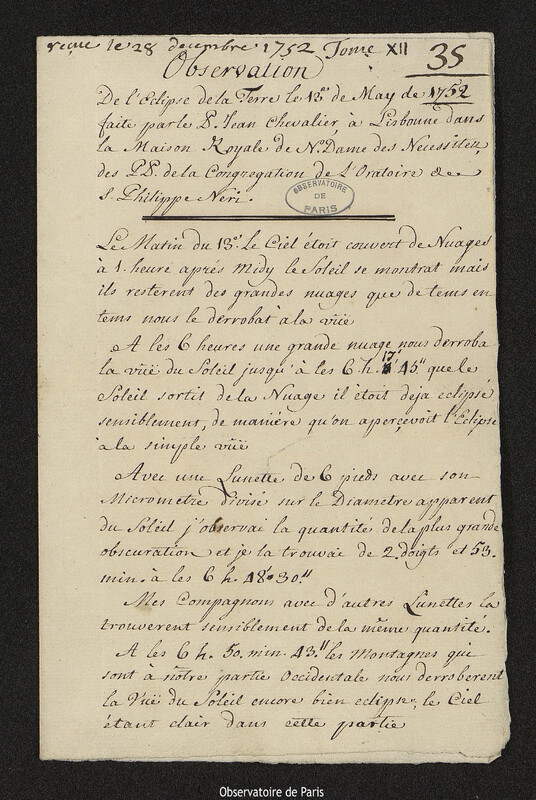 reçue le 28 decembre 1752 Tome XII 35
Observation
De l'Eclipse de la Terre le 13e de May de 1752
faite par le P. Jean Chevalier, à Lisbonne dans
la Maison Royale de N. Dame des Necessitez,
des PP. de la Congregation de l'Oratoire de
S. Philippe Neri.
OBSERVATOIRE
DE
PARIS
Le Matin du 13e le Ciel étoit couvert de Nuages
à 1. heure aprés Midy le Soleil se montrat mais
ils resterent des grandes nuages que de tems en
tems nous le derrobat à la vüe
A les 6 heures une grande nuage nous derroba
la vüe du Soleil jusqu'à les 6 h. 17' 45" que le
Soleil sortit de la Nuage il étoit deja eclipsé
sensiblement, de maniére qu'on aperçevoit l'Eclipse
à la simple vüe
Avec une Lunette de 6 pieds avec son
Micrometre divisé sur le Diametre apparent
du Soleil j'observai la quantité de la plus grande
obscuration et je la trouvai de 2. doigts et 53.
min. à les 6 h. 48' 30"
Mes Compagnons avec d'autres Lunettes la
trouverent sensiblement de la même quantité.
A les 6 h. 50. min. 43" les Montagnes que
sont à nôtre partie Occidentale nous derroberent
la Vüe du Soleil encore bien eclipsé, le Ciel
étant clair dans cette partie
Observatoire de Paris